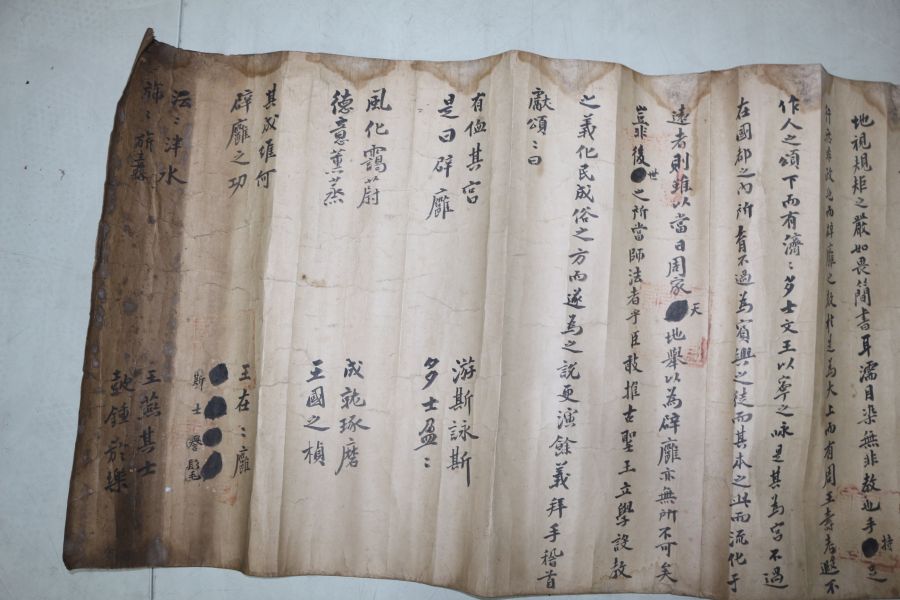 地視規矩之嚴如畏簡書耳濡目染無非教也手持
作人之頌下而有濟〻多士文王以寧之咏是其為宮不過
在國都之內所育不過為賓興之徒而其本之此而流化于
遠者則雖以當日周家天地舉以為辟廱亦無所不可矣
豈非後世之所當師法者乎臣敢推古聖王立學設教
之義化民成俗之方而遂為之說更演餘義拜手稽首
獻頌〻曰
有侐其宮 游斯詠斯
是曰辟廱 多士盈〻
風化靄蔚 成就琢磨
德意薰蒸 王國之楨
其成維何 王在〻廱
辟廱之功 斯士譽髦
沄〻泮水 王燕其士
鼓鍾於樂